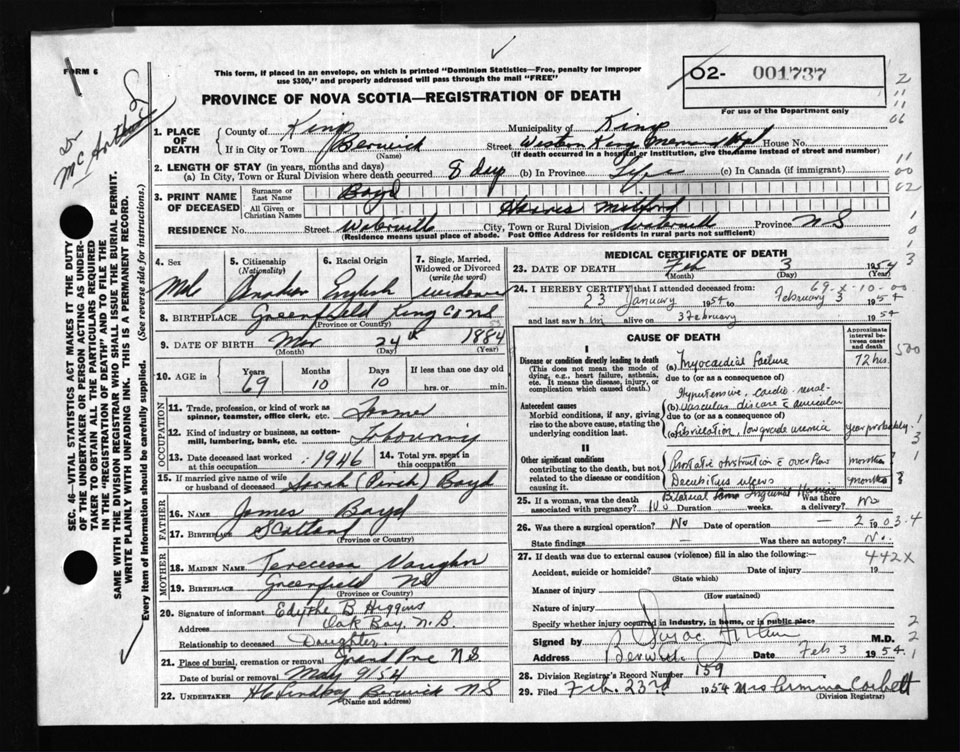 FORM 6
This form, if placed in an envelope, on which is printed "Dominion Statistics—Free, penalty for improper
use $300," and properly addressed will pass through the mail "FREE"
O2- 001737
For use of the Department only
PROVINCE OF NOVA SCOTIA—REGISTRATION OF DEATH
Dr McArthur
SEC. 46—VITAL STATISTICS ACT MAKES IT THE DUTY
OF THE UNDERTAKER OR PERSON ACTING AS UNDER-
TAKER TO OBTAIN ALL THE PARTICULARS REQUIRED
IN THE "REGISTRATION OF DEATH" AND TO FILE THE
SAME WITH THE DIVISION REGISTRAR WHO SHALL ISSUE THE BURIAL PERMIT.
WRITE PLAINLY WITH UNFADING INK. THIS IS A PERMANENT RECORD.
Every item of Information should be carefully supplied. (See reverse side for instructions.)
1. PLACE OF DEATH
County of Kings Municipality of Kings
If in City or Town Berwick Street Western Kings Mem Hspl House No.
(Name) (If death occurred in a hospital or institution, give the name instead of street and number)
2. LENGTH OF STAY (in years, months and days)
(a) In City, Town or Rural Division where death occurred 8 days (b) In Province Life (c) In Canada (if immigrant)
3. PRINT NAME OF DECEASED
Surname or Last Name Boyd
All Given or Christian Names Milford
RESIDENCE No. Street Waterville City, Town or Rural Division Waterville Province N S
(Residence means usual place of abode. Post Office Address for residents in rural parts not sufficient)
4. Sex
Male
5. Citizenship (Nationality)
Canadian
6. Racial Origin
English
7. Single, Married, Widowed or Divorced (write the word)
widower
8. BIRTHPLACE Greenfield Kings Co NS
(Province or Country)
9. DATE OF BIRTH Mar 24th 1884
(Month) (Day) (Year)
10. AGE in Years Months Days If less than one day old
69 10 10 hrs. or min.
OCCUPATION
11. Trade, profession, or kind of work as
spinner, teamster, office clerk, etc. Farmer
12. Kind of industry or business, as cotton-
mill, lumbering, bank, etc.
13. Date deceased last worked at this occupation 1946 14. Total yrs. spent in this occupation
15. If married give name of wife
or husband of deceased Sarah (Pinch) Boyd
FATHER
16. Name James Boyd
17. Birthplace Scotland
(Province or Country)
MOTHER
18. MAIDEN NAME Vaughn
19. BIRTHPLACE Greenfield NS
(Province or Country)
20. Signature of informant Edythe B Higgins
Address Oak Bay, N.B.
Relationship to deceased Daughter
21. Place of burial, cremation or removal Grand Pre NS
Date of burial or removal May 9/54
22. UNDERTAKER H C Lindsay Berwick NS
(Name and address)
MEDICAL CERTIFICATE OF DEATH
23. DATE OF DEATH Feb 3 1954
(Month) (Day) (Year)
69-X-10-00
24. I HEREBY CERTIFY that I attended deceased from:
23 January 1954 to February 3 1954
and last saw him alive on 3 February 1954
CAUSE OF DEATH
Approximate interval between onset and death
I
Disease or condition directly leading to death
(This does not mean the mode of dying, e.g., heart failure, asthenia, etc. It means the disease, injury, or complication which caused death.)
(a) Myocardial failure 72 hrs.
due to (or as a consequence of)
Antecedent causes
Morbid conditions, if any, giving rise to the above cause, stating the underlying condition last.
Hypertensive, cardio-renal-
(b) vascular disease & auricular
due to (or as a consequence of)
(c) fibrillation, low grade uremia year probably
II
Other significant conditions
contributing to the death, but not related to the disease or condition causing it.
Prostatic obstruction & overflow months
Decubitus ulcers months
Bilateral Inguinal Hernia
25. If a woman, was the death associated with pregnancy? No Duration weeks. Was there a delivery? No
26. Was there a surgical operation? No Date of operation — 19
State findings — Was there an autopsy? No.
27. If death was due to external causes (violence) fill in also the following:—
442X
Accident, suicide or homicide? Date of injury 19
(State which)
Manner of injury
(How sustained)
Nature of injury
Specify whether injury occurred in industry, in home, or in public place
Signed by M.D.
Address Berwick Date Feb 3 1954
28. Division Registrar's Record Number 159
29. Filed Feb. 23rd 1954 Mrs Corbett
(Division Registrar)